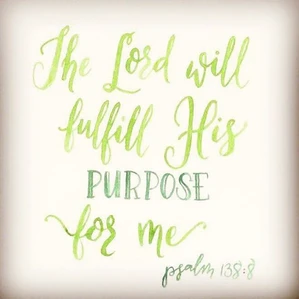 The Lord will
fulfill His
PURPOSE
for me
psalm 138:8